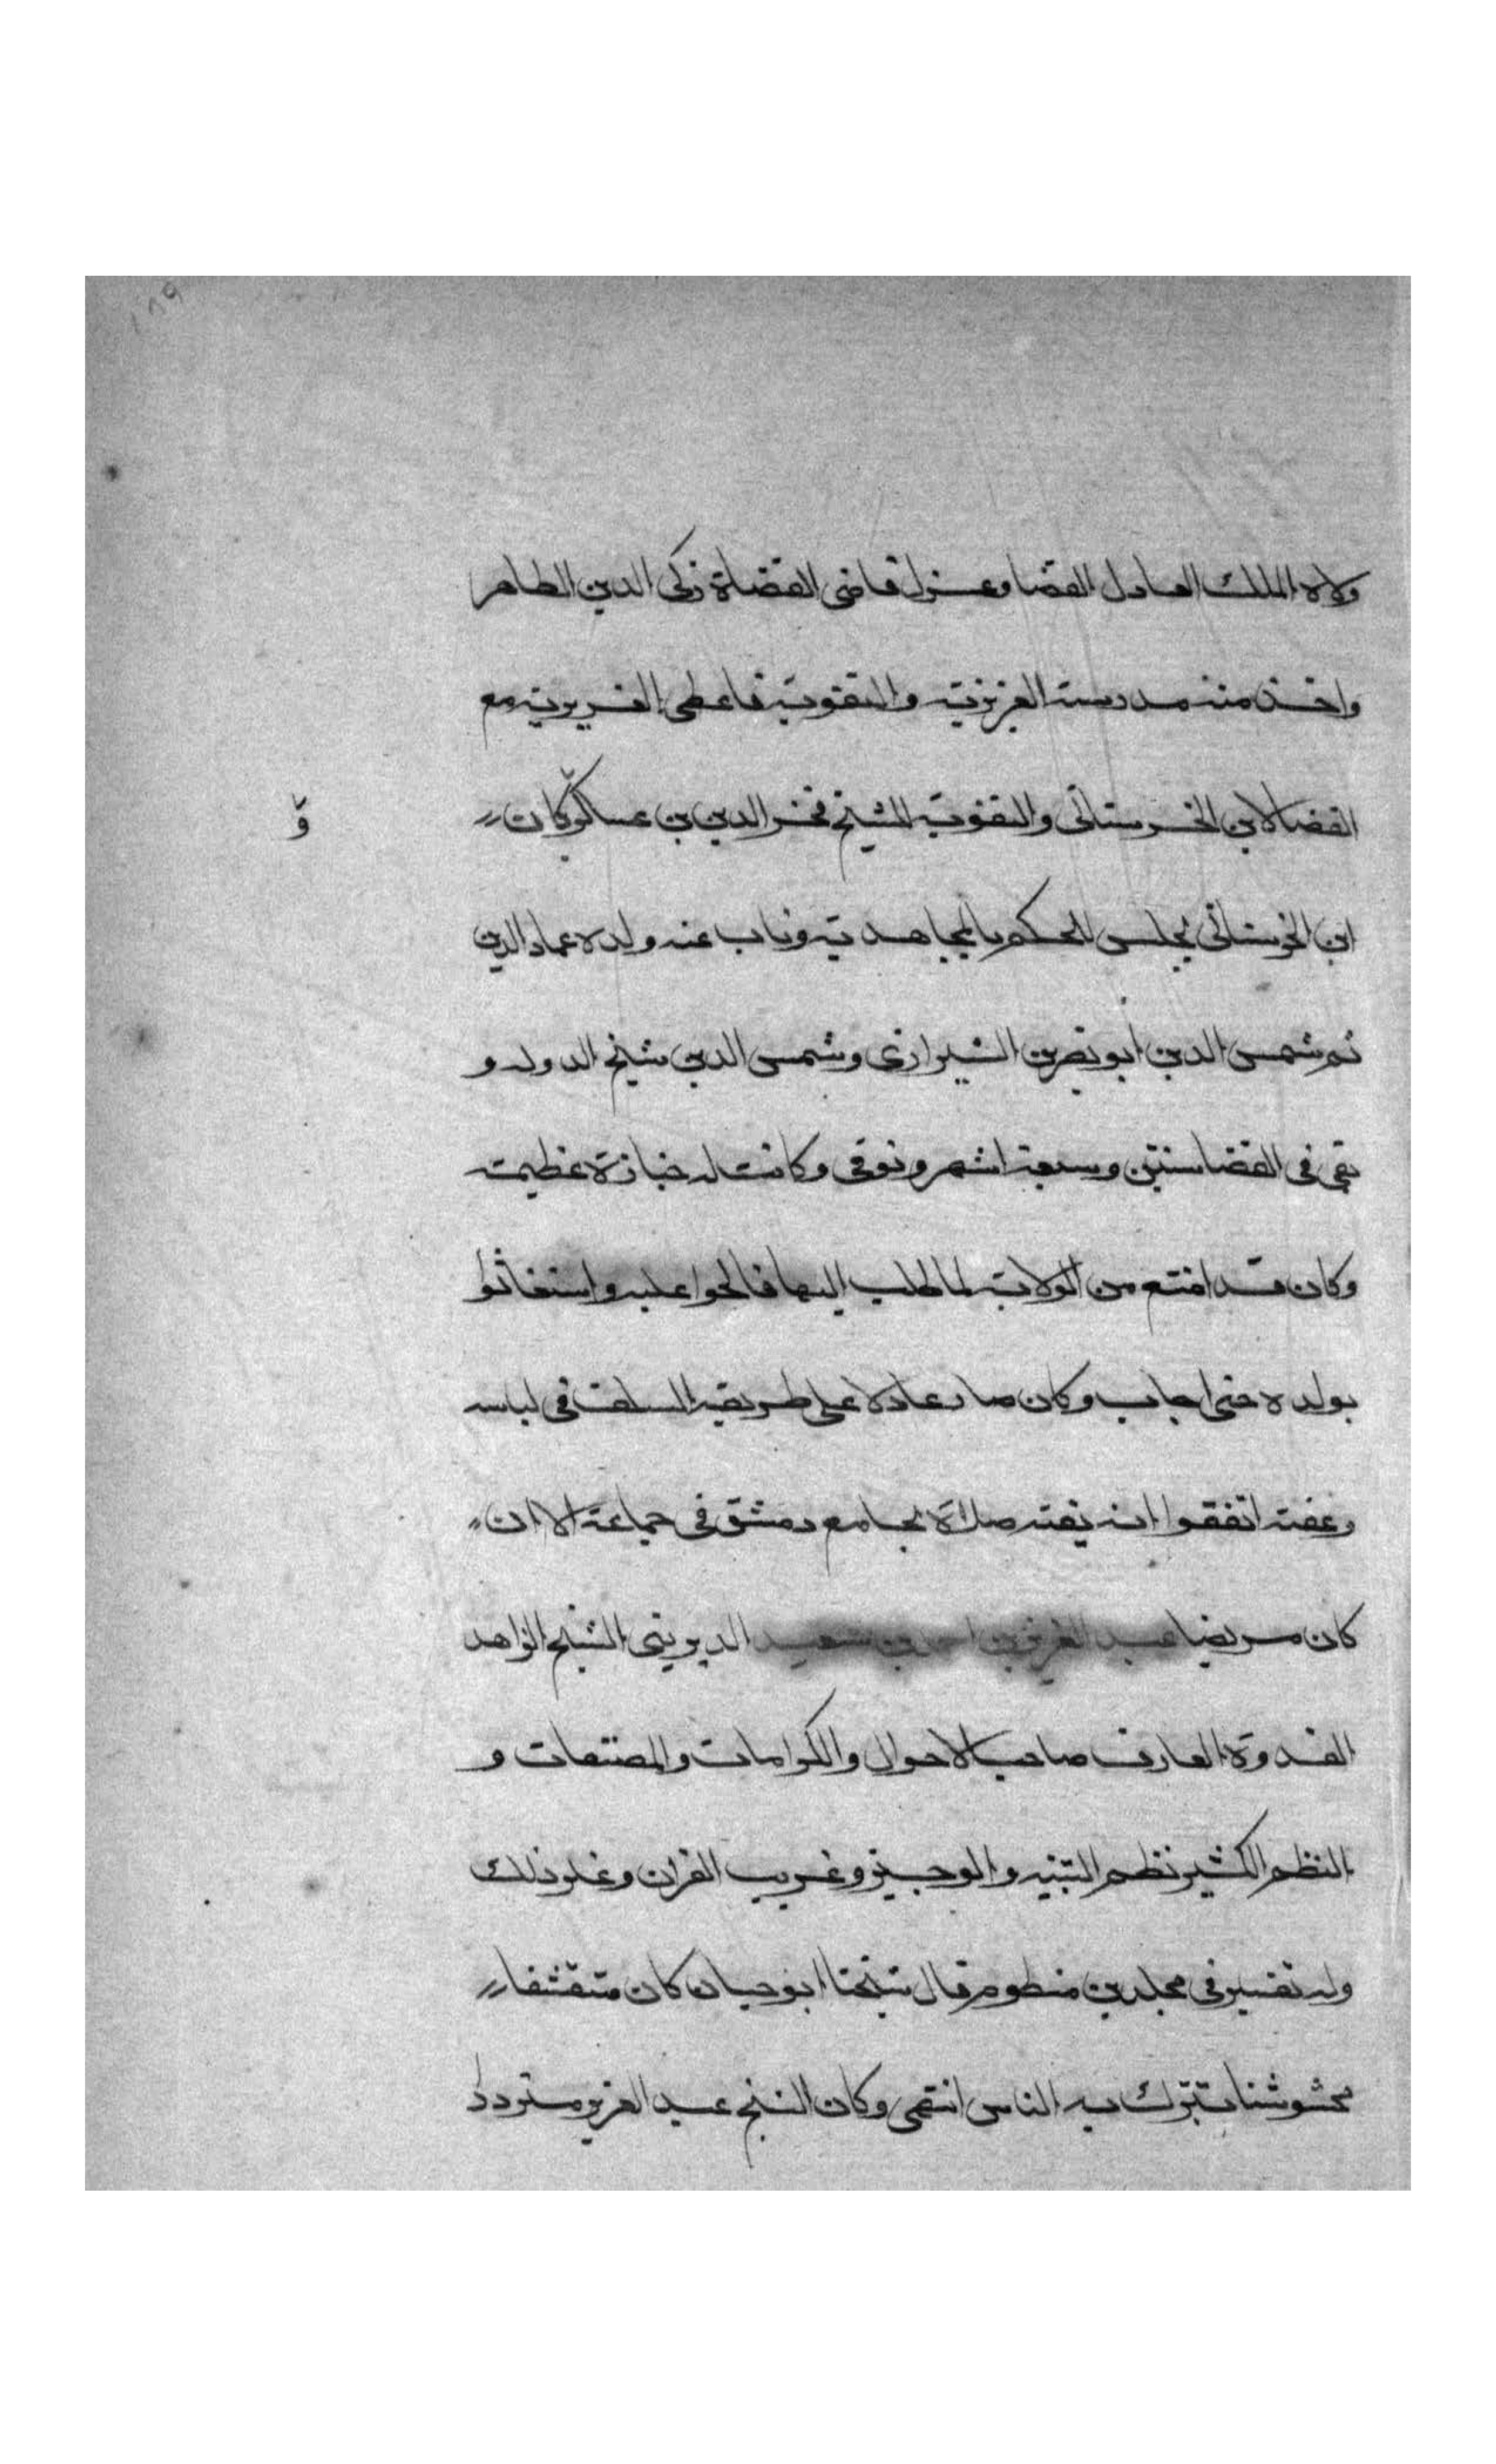 ولاه الملك العادل القضا وعزل قاضى القضاة زكى الدين الطاهر
واخذ منه مدرسته العزيزية والتقوية فاعطى العزيزية مع
القضا لابن الخرستانى والتقوية للشيخ فخر الدين بن عساكر وكان
و
ابن الخرستانى يجلس للحكم بالمجاهدية وناب عنه ولده عماد الدين
ثم شمس الدين ابو نصر بن الشيرازى وشمس الدين شيخ الدوله و
بقى فى القضا سنتين وسبعة اشهر وتوفى وكانت له جنازة عظيمة
وكان قد امتنع من الولاية لما طلب اليها فالحوا عليه واستغاثوا
بولده حتى اجاب وكان صارعادلا على طريقه السلف فى لباسه
وعفته اتفقوا انه يفته صلاة بجامع دمشق فى جماعة الا ان
كان مريضا عبد العزيز بن احمد بن سعيد الديرينى الشيخ الزاهد
القدوة العارف صاحب الاحوال والكرامات والمصنفات و
النظم الكثير نظم التنبيه والوجيز وغريب القران وغير ذلك
وله تفسير فى مجلدين منظوم قال شيخنا ابو حيان كان متقشفا
مخشوشنا تتبرك به الناس انتهى وكان الشيخ عبد العزيز متردد